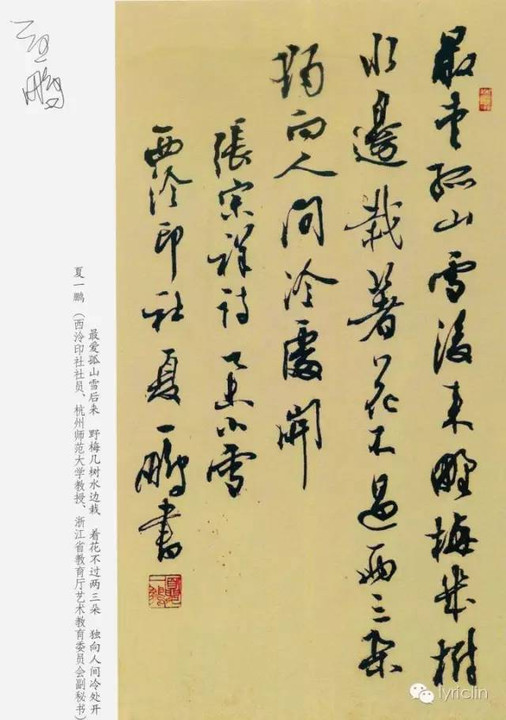 最爱孤山雪後来野梅几樹
水邊栽著花不過两三朵
獨向人间冷處開
張宗祥诗
小雪
西泠印社夏一鹏書
夏一鹏
最爱孤山雪后来 野梅几树水边栽 着花不过两三朵 独向人间冷处开
夏一鹏（西泠印社社员、杭州师范大学教授、浙江省教育厅艺术教育委员会副秘书）
lyriclin